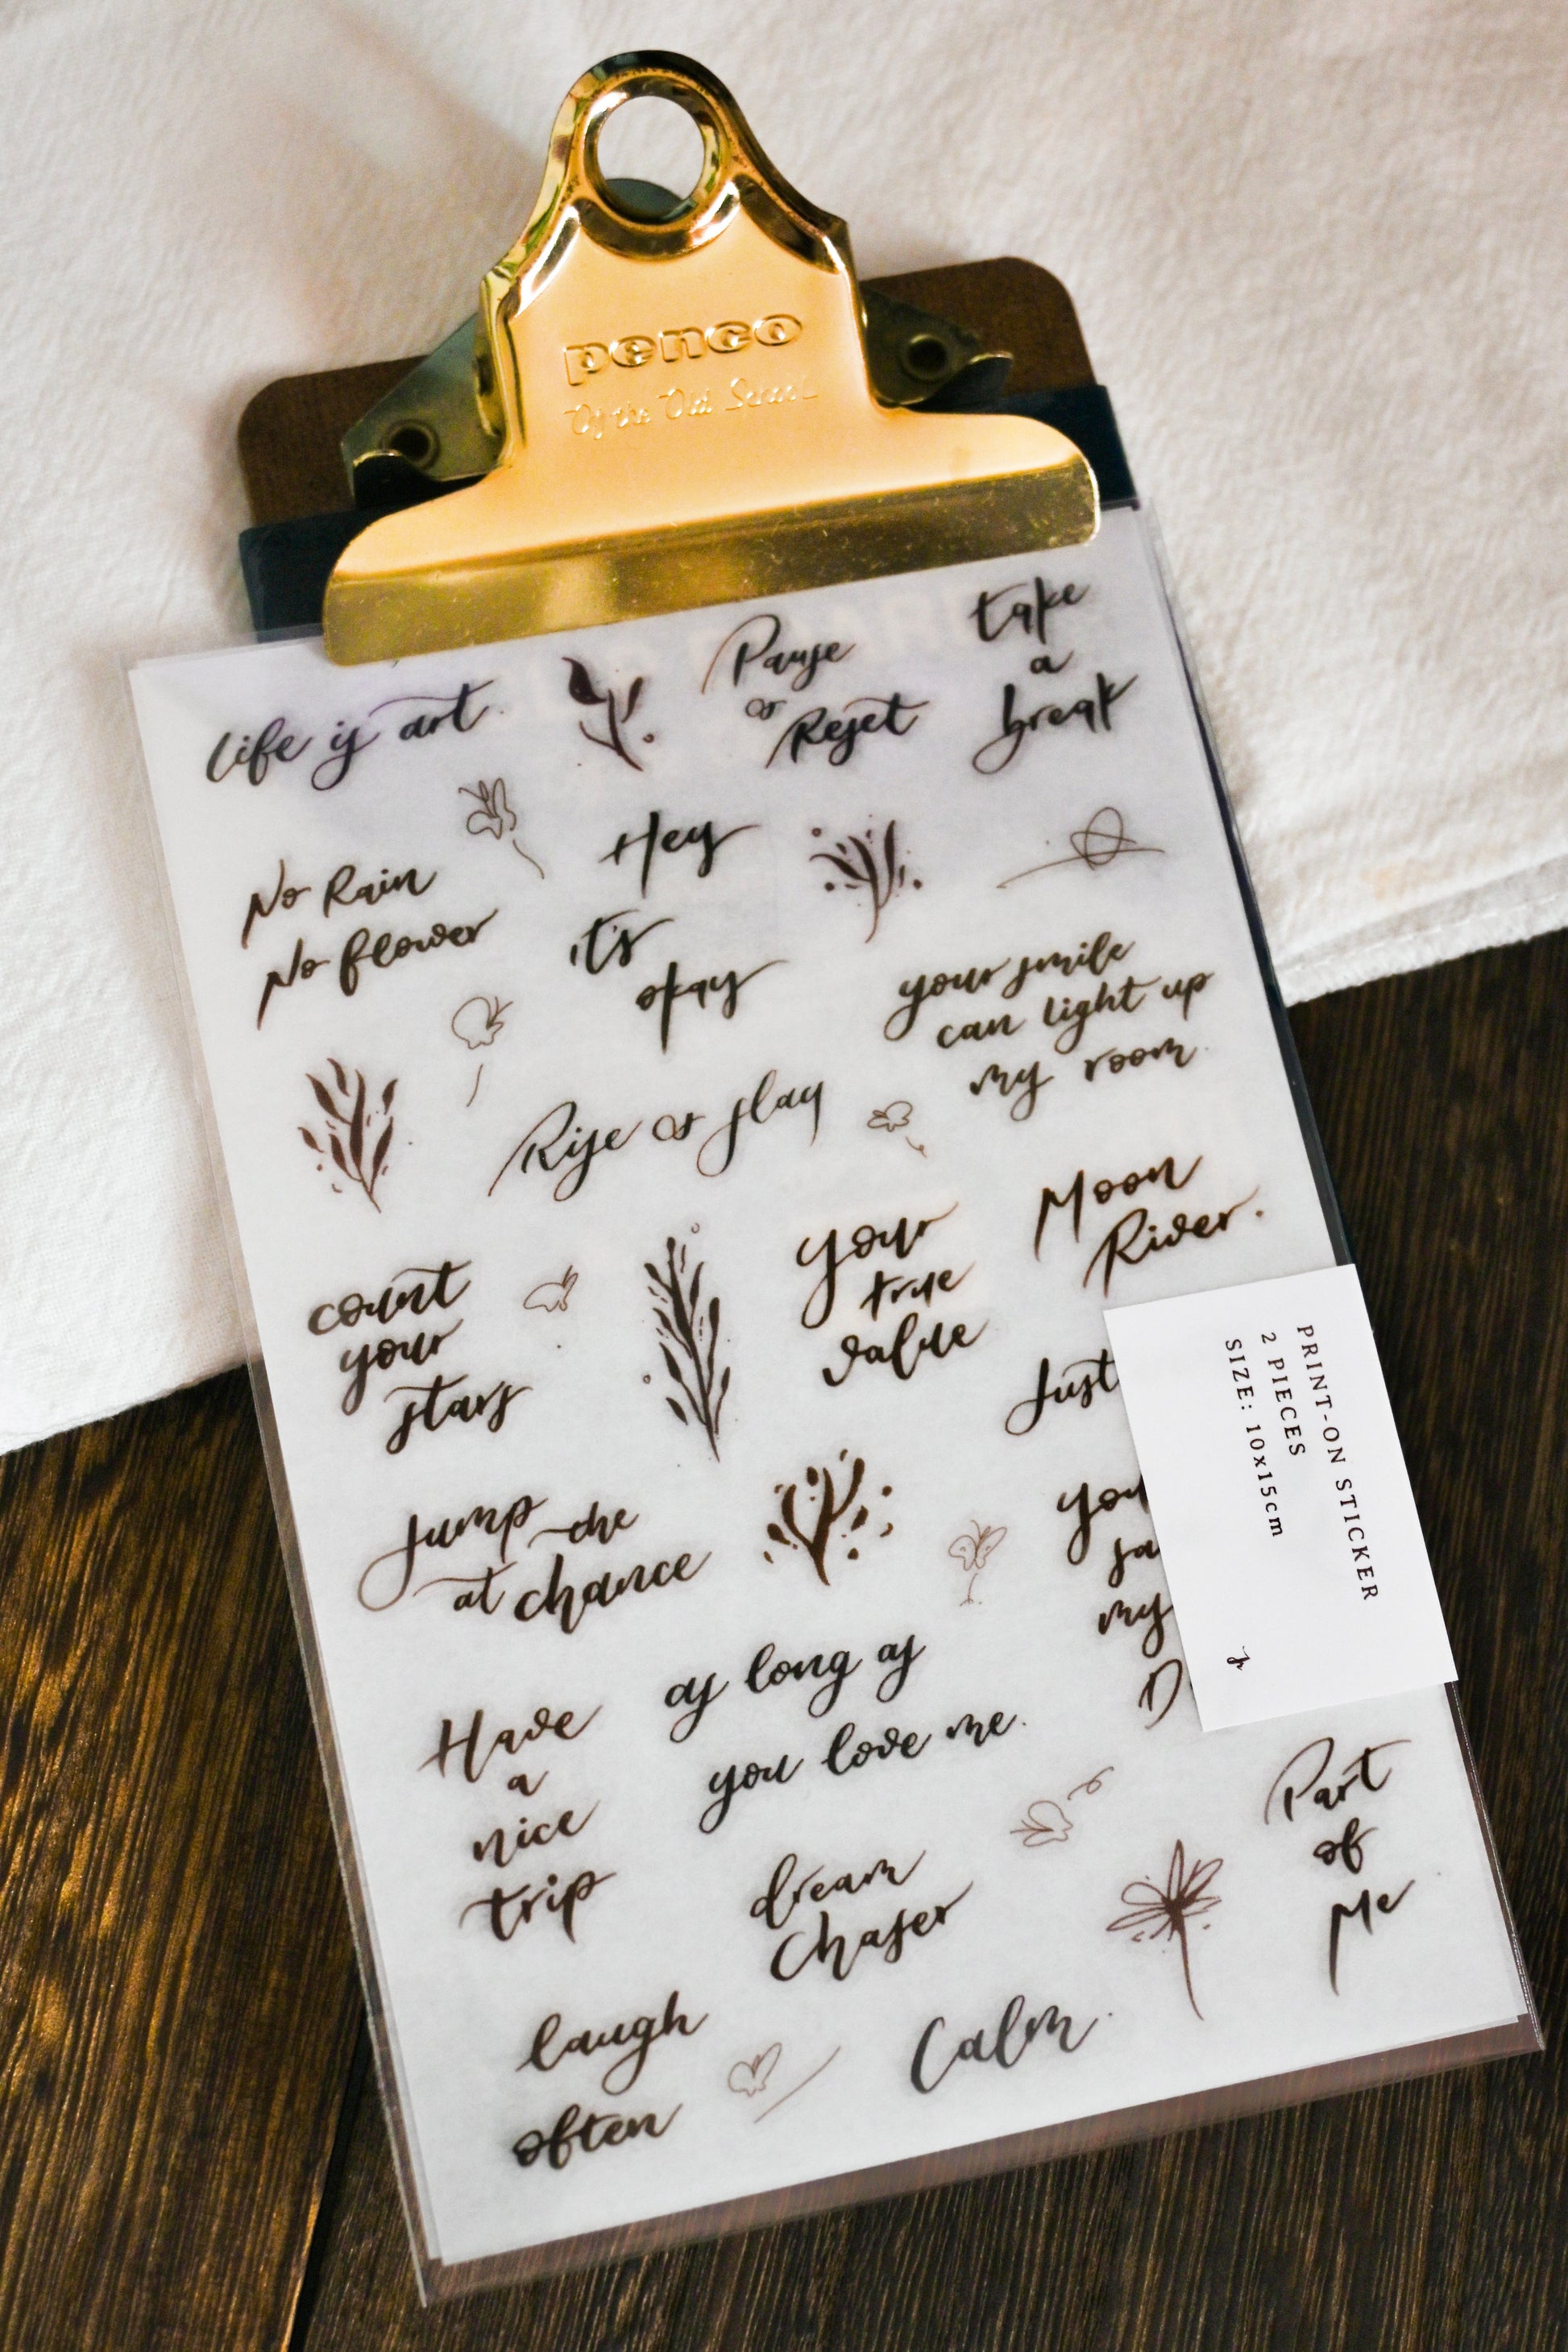 penco
Of the Old School
take
a
break
Pause
or
Reset
life is art.
Hey
it's
okay
No Rain
No flower
your smile
can light up
my room.
Rise or slay
Moon
River.
your
true
value
count
your
stars
Just
PRINT-ON STICKER
2 PIECES
SIZE: 10x15cm
Jump the
at chance
my
as long as
you love me.
Have
a
nice
trip
Part
of
Me
dream
Chaser
Calm.
laugh
often